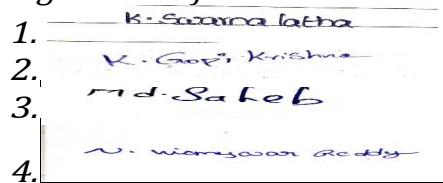 1. K. Swarna latha
2. K. Gopi Krishna
3. Md. Saheb
4. N. Reddy